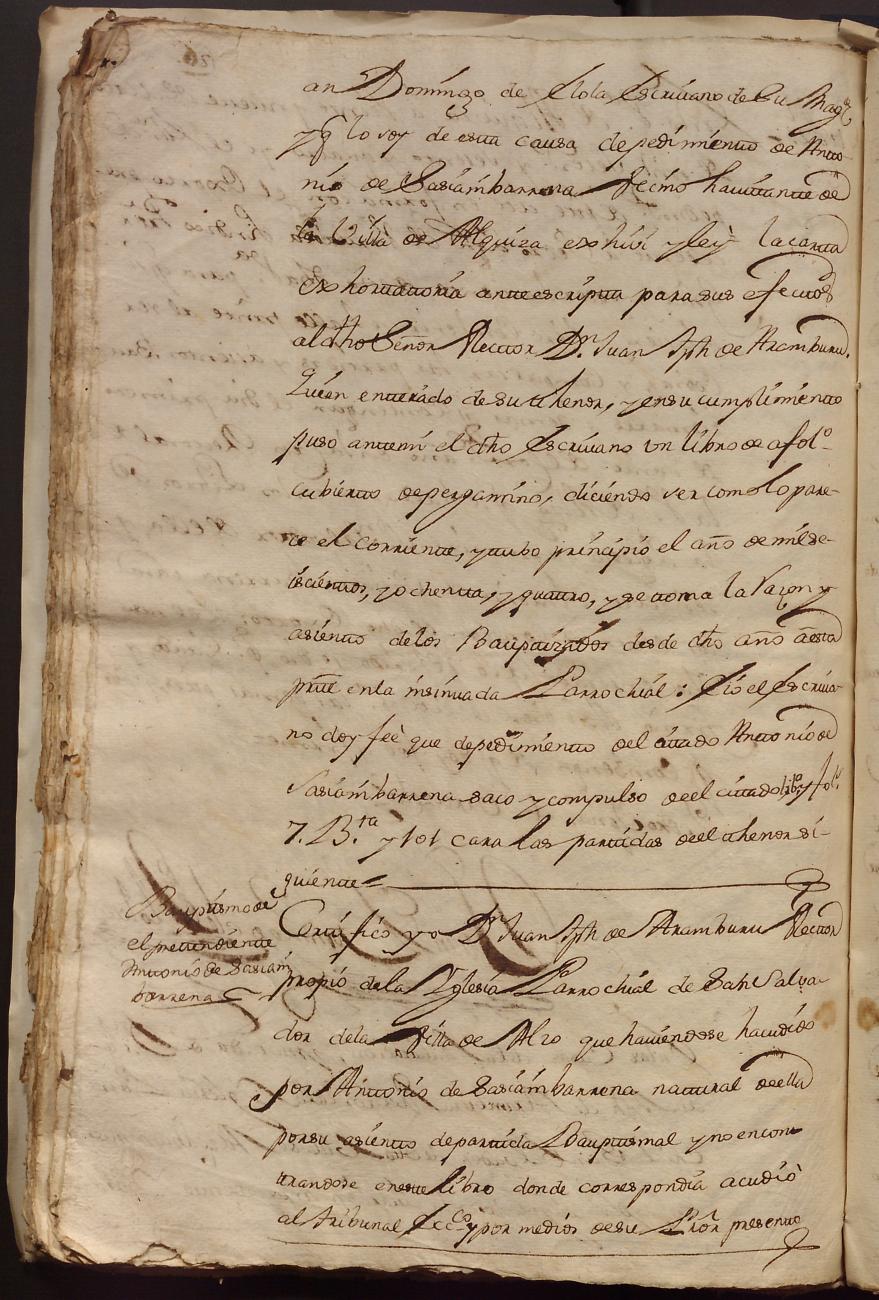 an Domingo de Elola Escrivano de Su Magd.
y qe lo soy de esta causa de pedimiento de Anto-
nio de Sasiambarrena vecino havitante de
la Villa de Alquiza exhivi y ley la carta
exhortatoria antescripta para sus efectos
al dho Señor Rector Dn. Juan Jph de Aramburu.
Quien enterado de su thenor, y en su cumplimiento
puso ante mi el dho Escrivano un libro de a folo.
cubierto de pergamino, diciendo ser como lo pare-
ce el corriente, y tubo principio el año de mil se-
iscientos, y ochenta, y quatro, y se toma la raçon y
asiento de los Baptizados desde dho año a esta
prnte en la insinuada Parrochial: E io el Escriva-
no doy feè que de pedimiento del citado Antonio de
Sasiambarrena saco y compulso de el citado libo. y folo.
7. B.ta y 101 cara las partidas de el thenor si-
guiente
Baptismo de
el pretendiente
Antonio de Sasiam
barrena
Certifico yo Dn. Juan Jph de Aramburu Rector
propio de la Yglesia Parrochial de San Salva-
dor de la Villa de Alzo que haviendose hacudido
por Antonio de Sasiambarrena natural de ella
por su asiento de partida Baptismal y no encon
trandose en este libro donde correspondia acudiò
al tribunal Ecco. y por medio de su Pror. presento